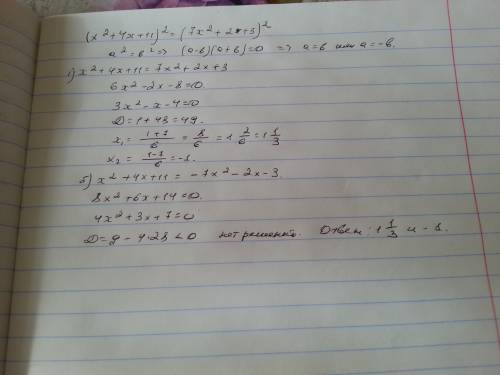 (x²+4x+11)²=(7x²+2x+3)²
a²=b² => (a-b)(a+b)=0 => a=b или a=-b.
1) x²+4x+11=7x²+2x+3
6x²-2x-8=0.
3x²-x-4=0
D=1+48=49.
x₁= (1+7)/6 = 8/6 = 1 2/6 = 1 1/3
x₂= (1-7)/6 = -1.
5) x²+4x+11 = -7x²-2x-3.
8x²+6x+14=0.
4x²+3x+7=0
D=9-4·28<0 нет решений. Ответ: 1 1/3 и -1.